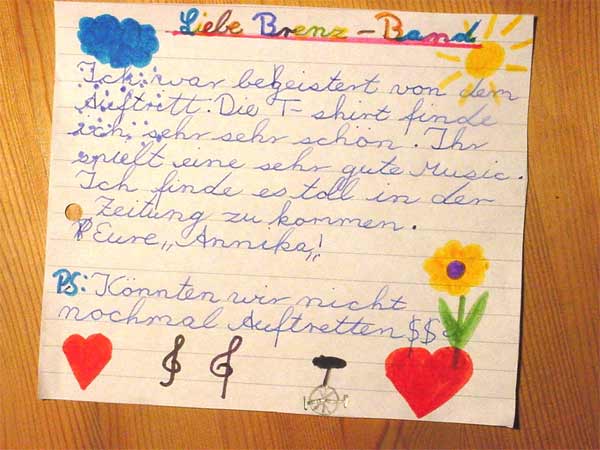 Liebe Brenz-Band
Ich war begeistert von dem
Auftritt. Die T-shirt finde
ich sehr sehr schön. Ihr
spielt eine sehr gute Music.
Ich finde es toll in der
Zeitung zu kommen.
Eure „Annika"!
PS: Könnten wir nicht
nochmal Auftretten